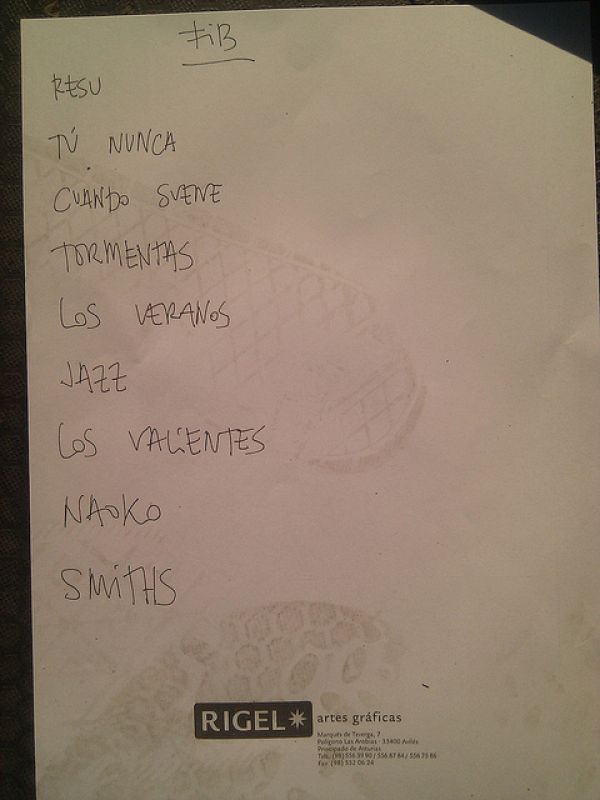 FiB
RESU
TÚ NUNCA
CUANDO SUENE
TORMENTAS
LOS VERANOS
JAZZ
LOS VALIENTES
NAOKO
SMiTHS
RIGEL artes gráficas
Marqués de Teverga, 7
Polígono Las Arobias · 33400 Avilés
Principado de Asturias
Telfs. (98) 556 39 90 / 556 87 84 / 556 75 86
Fax (98) 552 06 24